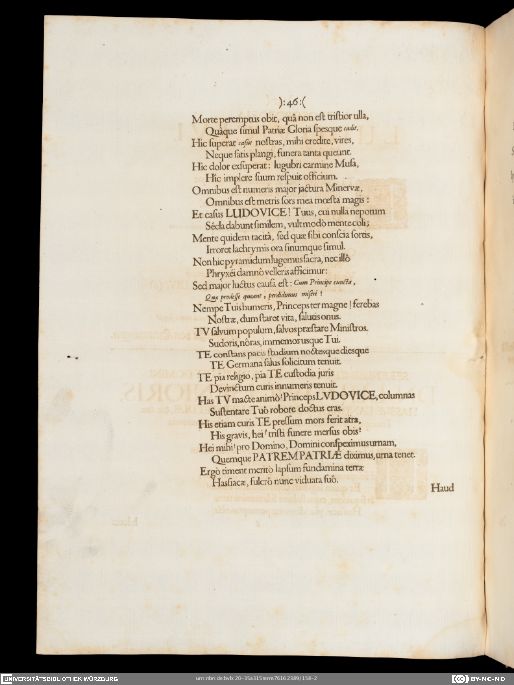 ):46:(
Morte peremptus obit, quâ non est tristior ulla,
Quâque simul Patriæ Gloria spesque cadit.
Hic superat casus nostras, mihi credite, vires,
Neque satis plangi, funera tanta queunt.
Hic dolor exsuperat: lugubri carmine Musa,
Hic implere suum respuit officium.
Omnibus est numeris major jactura Minervæ,
Omnibus est metris sors mea mœsta magis:
Et casus LUDOVICE! Tuus, cui nulla nepotum
Secla dabunt similem, vult modò mente coli;
Mente quidem tacitâ, sed quæ sibi conscia sortis,
Irroret lachrymis ora sinumque simul.
Non hic pyramidum lugemus sacra, nec illô
Phryxéi damnô velleris afficimur:
Sed major luctus causa est: Cum Principe cuncta,
Quæ prodesse queunt, perdidimus miseri!
Nempe Tuis humeris, Princeps ter magne! ferebas
Nostræ, dum staret vita, salutis onus.
TV salvum populum, salvos præstare Ministros.
Sudoris, nôras, immemorusque Tui.
TE constans pacis studium noctesque diesque
TE Germana salus solicitum tenuit.
TE pia religio, pia TE custodia juris
Devinctum curis innumeris tenuit.
Has TV macte animô! Princeps LVDOVICE, columnas
Sustentare Tuô robore doctus eras.
His etiam curis TE pressum mors ferit atra,
His gravis, hei! tristi funere mersus obis!
Hei mihi! pro Domino, Domini conspeximus urnam,
Quemque PATREM PATRIÆ diximus, urna tenet.
Ergò timent meritò lapsum fundamina terræ
Hassiacæ, fulcrô nunc viduata suô.
Haud
UNIVERSITÄTSBIBLIOTHEK WÜRZBURG
CC BY-NC-ND